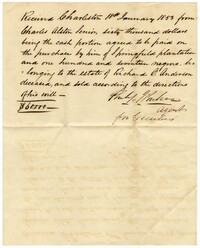 Received Charleston 18th January 1853 from
Charles Alston Senior sixty thousand dollars
being the cash portion agreed to be paid on
the purchase by him of Springfield plantation
and one hundred and seventeen negroes be-
longing to the estate of Richard O. Anderson
deceased, and sold according to the directions
of his will —
$60000
agent
for Executors